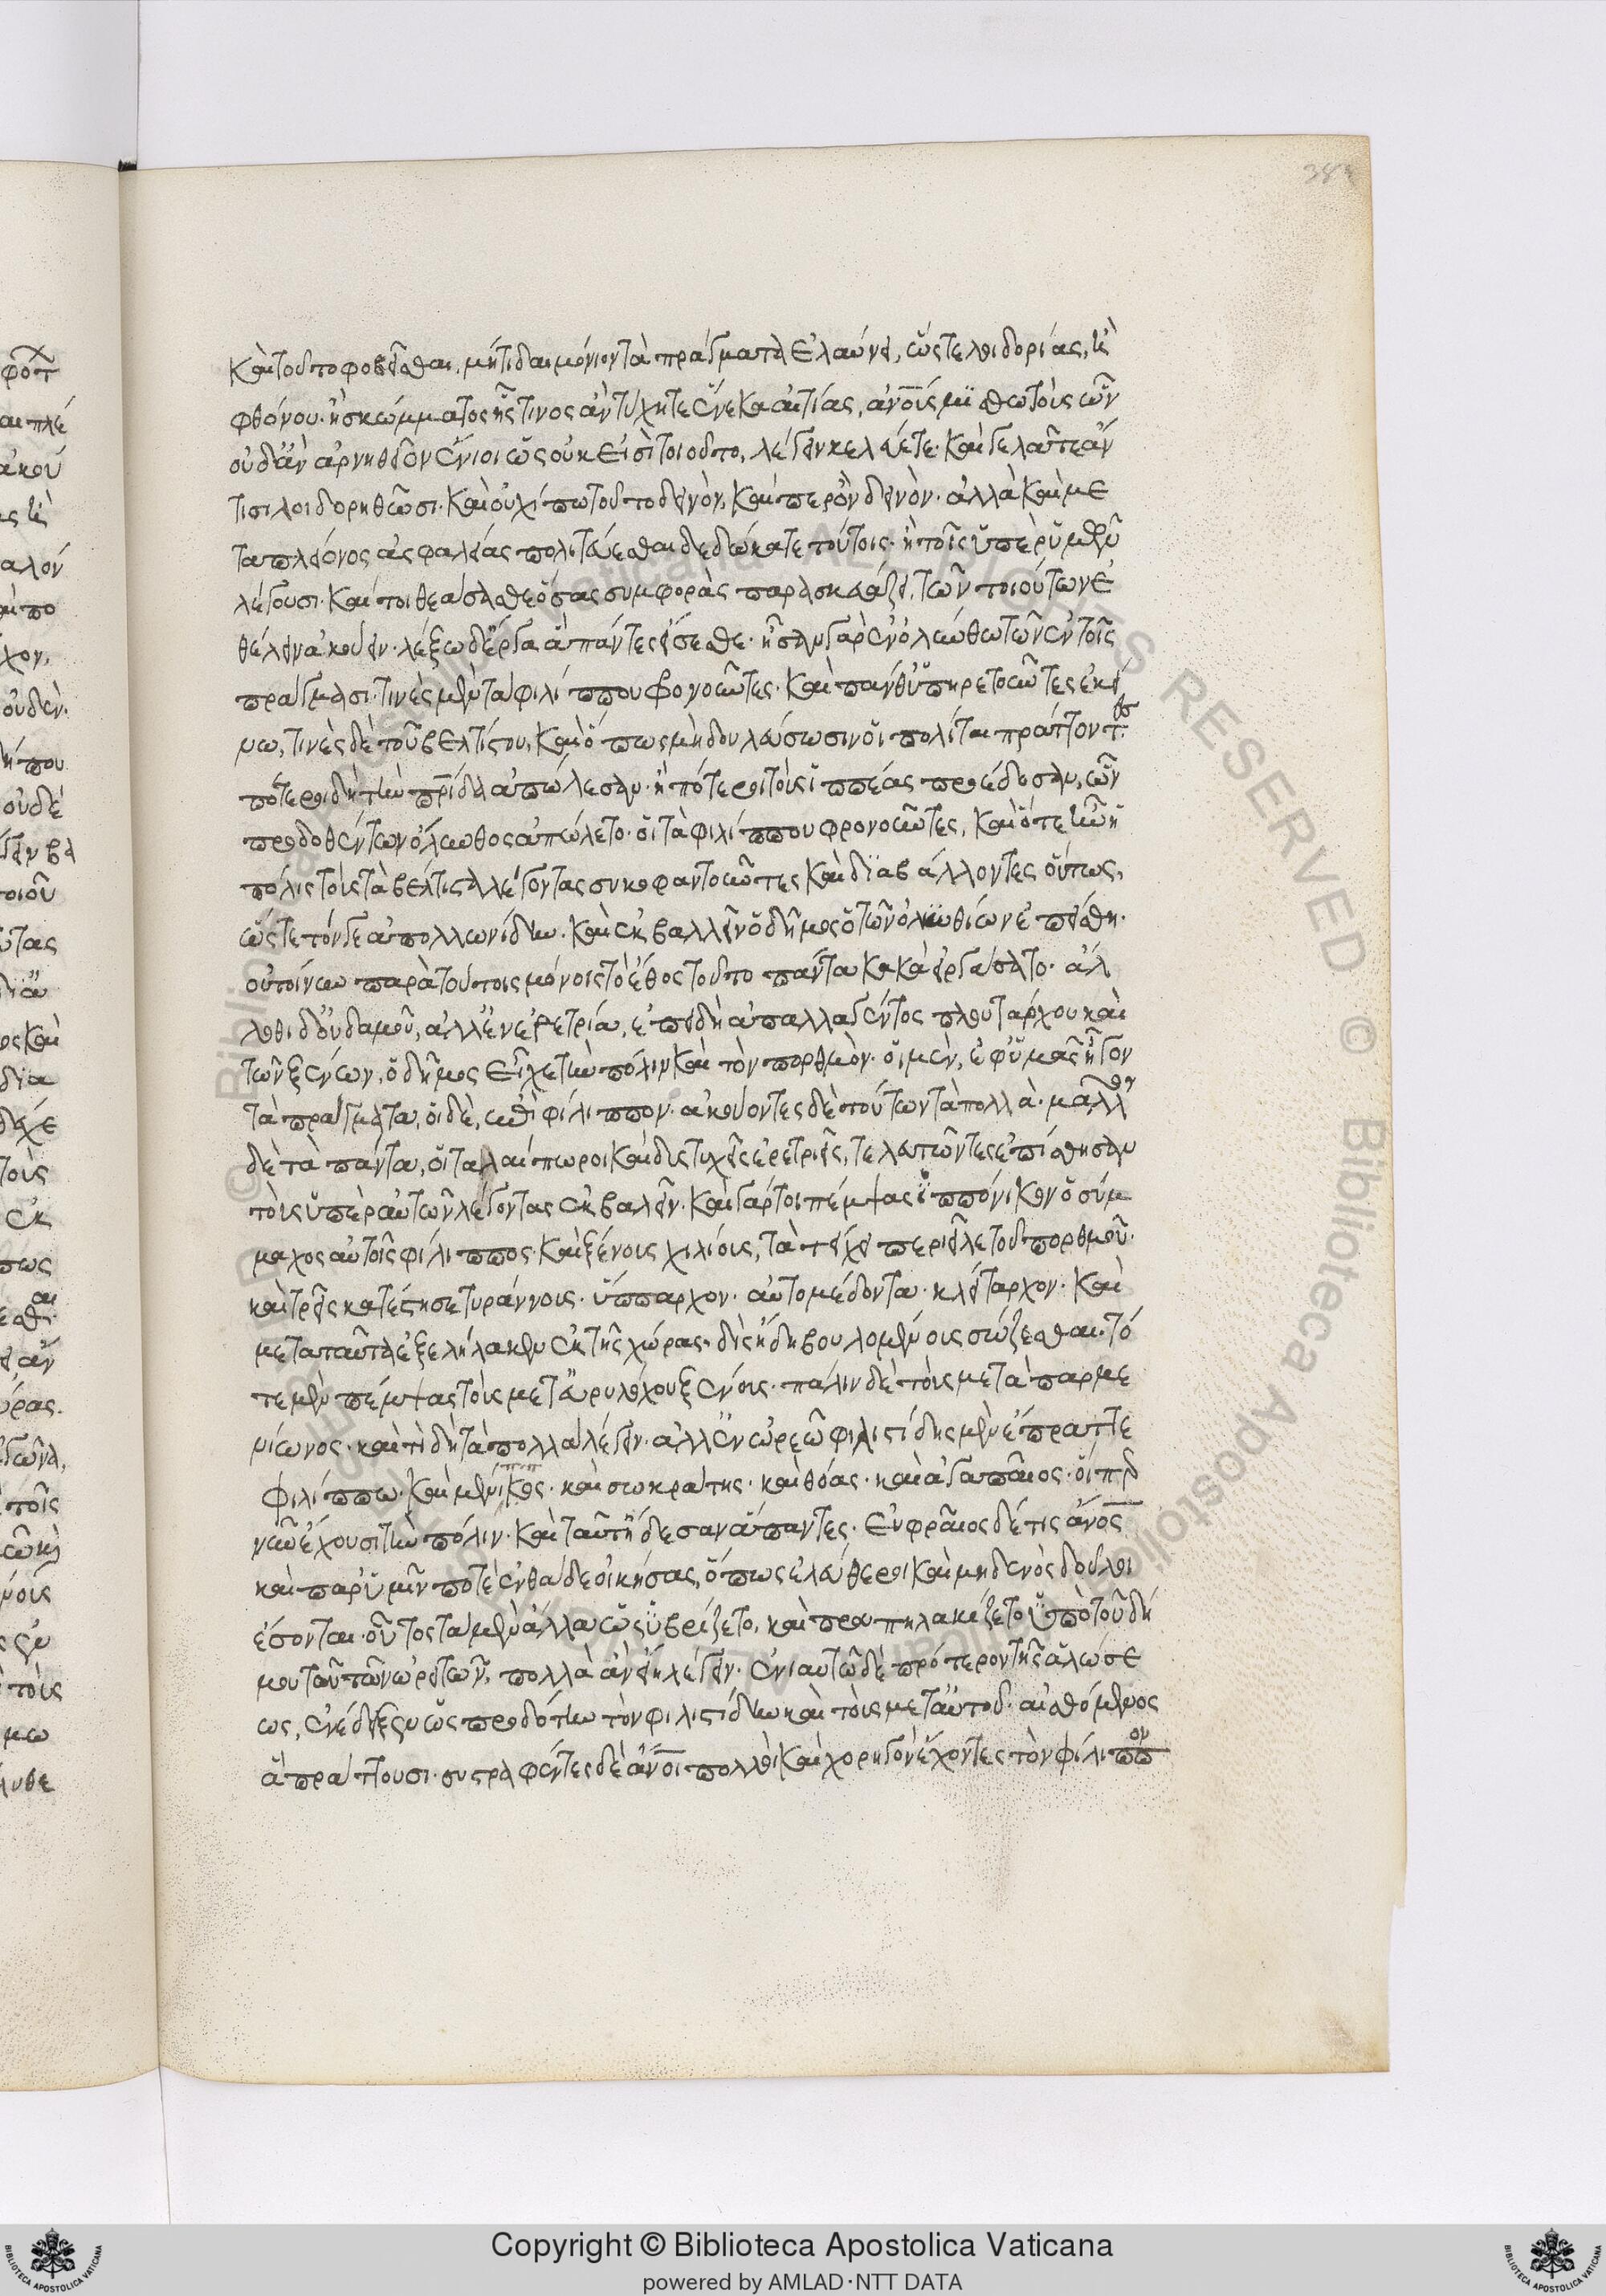 381
καὶ τοῦτο φοβεῖσθαι. μή τι δαιμόνιον τὰ πράγματα ἐλαύνει, ὥστε λοιδορίας, ἢ
φθόνου. ἢ σκώμματος ἧς τινος ἂν τύχητε ἕνεκα αἰτίας, ἀνοῖς μισθωτοὺς ὧν
οὐδ' ἂν ἀρνηθεῖεν ἔνιοι ὡς οὐκ εἰσὶ τοιοῦτο, λέγειν κελεύετε. καὶ γελᾶτε ἄν
τισι λοιδορηθῶσι. καὶ οὐχί πω τοῦτο δεινὸν, καίπερ ὂν δεινὸν. ἀλλὰ καὶ με
τὰ πλείονος ἀσφαλείας πολιτεύεσθαι δεδώκατε τούτοις. ἢ τοῖς ὑπὲρ ὑμῶν
λέγουσι. καίτοι θεάσασθε ὅσας συμφορὰς παρασκευάζει, τῶν τοιούτων ἐ
θέλειν ἀκούειν. λέξω δ' ἔργα ἃ πάντες εἴσεσθε. ἦσαν γὰρ ἐν ὀλύνθω τῶν ἐν τοῖς
πράγμασι. τινὲς μὲν τὰ φιλίππου φρονοῦντες. καὶ πάνθ' ὑπηρετοῦντες ἐκεί
νω, τινὲς δὲ τοῦ βελτίστου, καὶ ὅπως μὴ δουλεύσωσιν οἱ πολίται πράττοντες.
πότεροι δὴ τὴν πρίδα ἀπώλεσαν. ἢ πότεροι τοὺς ἱππέας προέδοσαν, ὧν
προδοθέντων ὄλυνθος ἀπώλετο. οἱ τὰ φιλίππου φρονοῦντες, καὶ ὅτε ἦν ἡ
πόλις τοὺς τὰ βέλτιστα λέγοντας συκοφαντοῦντες καὶ διαβάλλοντες οὕτως,
ὥστε τόν γε ἀπολλωνίδην. καὶ ἐκβαλλεῖν ὁ δῆμος ὁ τῶν ὀλυνθίων ἐπείσθη.
οὐ τοίνυν παρὰ τούτοις μόνοις τὸ ἔθος τοῦτο πάντα κακὰ εἰργάσατο. ἀλ
λοθι δ' οὐδαμοῦ, ἀλλ' ἐν ἐρετρία, ἐπειδὴ ἀπαλλαγέντος πλουτάρχου καὶ
τῶν ξένων, ὁ δῆμος εἶχε τὴν πόλιν καὶ τὸν πορθμὸν. οἱ μὲν, ἐφ' ὑμᾶς ἦγον
τὰ πράγματα, οἱ δὲ, ἐπὶ φίλιππον. ἀκούοντες δὲ τούτων τὰ πολλὰ. μᾶλλον
δὲ τὰ πάντα, οἱ ταλαίπωροι καὶ δυστυχεῖς ἐρετριεῖς, τελευτῶντες ἐπείσθησαν
τοὺς ὑπὲρ αὐτῶν λέγοντας ἐκβαλεῖν. καὶ γάρ τοι πέμψας ἱππόνικον ὁ σύμ
μαχος αὐτοῖς φίλιππος. καὶ ξένους χιλίους, τὰ τείχει περιεῖλε τοῦ πορθμοῦ.
καὶ τρεῖς κατέστησε τυράννους. ὕππαρχον. αὐτομέδοντα. κλείταρχον. καὶ
μετα ταῦτα ἐξελήλακεν ἐκ τῆς χώρας. δὶς ἤδη βουλομένους σώζεσθαι. τό
τε μὲν πέμψας τοὺς μετ' εὐρυλόχου ξένους. πάλιν δὲ τοὺς μετὰ παρμε
νίωνος. καὶ τὶ δεῖ τὰ πολλὰ λέγειν. ἀλλ' ἐν ὠρεῶ φιλιστίδης μὲν ἔπραττε
φιλίππω. καὶ μένιππος. καὶ σωκράτης. καὶ θόας. καὶ ἀγαπαῖος. οἵπερ
νῦν ἔχουσι τὴν πόλιν. καὶ ταῦτ' ἤδεσαν ἅπαντες. εὐφραῖος δέ τις ἄνος
καὶ παρ' ὑμῖν ποτὲ ἐνθάδε οἰκήσας, ὅπως ἐλεύθεροι καὶ μηδενὸς δοῦλοι
ἔσονται. οὗτος τὰ μὲν ἄλλα ὡς ὑβρίζετο, καὶ προυπηλακίζετο ὑπὸ τοῦ δή
μου τοῦ τῶν ὠρειτῶν, πολλὰ ἂν εἴη λέγειν. ἐνιαυτῶ δὲ πρότερον τῆς ἁλώσε
ως, ἐνέδειξεν ὡς προδότην τὸν φιλιστίδην καὶ τοὺς μετ' αὐτοῦ. αἰσθόμενος
ἃ πράττουσι. συστραφέντες δὲ ἄνοι πολλοὶ καὶ χορηγὸν ἔχοντες τὸν φίλιππον
Copyright © Biblioteca Apostolica Vaticana
powered by AMLAD·NTT DATA